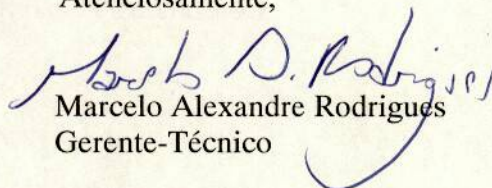 Atenciosamente,
Marcelo A. Rodrigues
Marcelo Alexandre Rodrigues
Gerente-Técnico